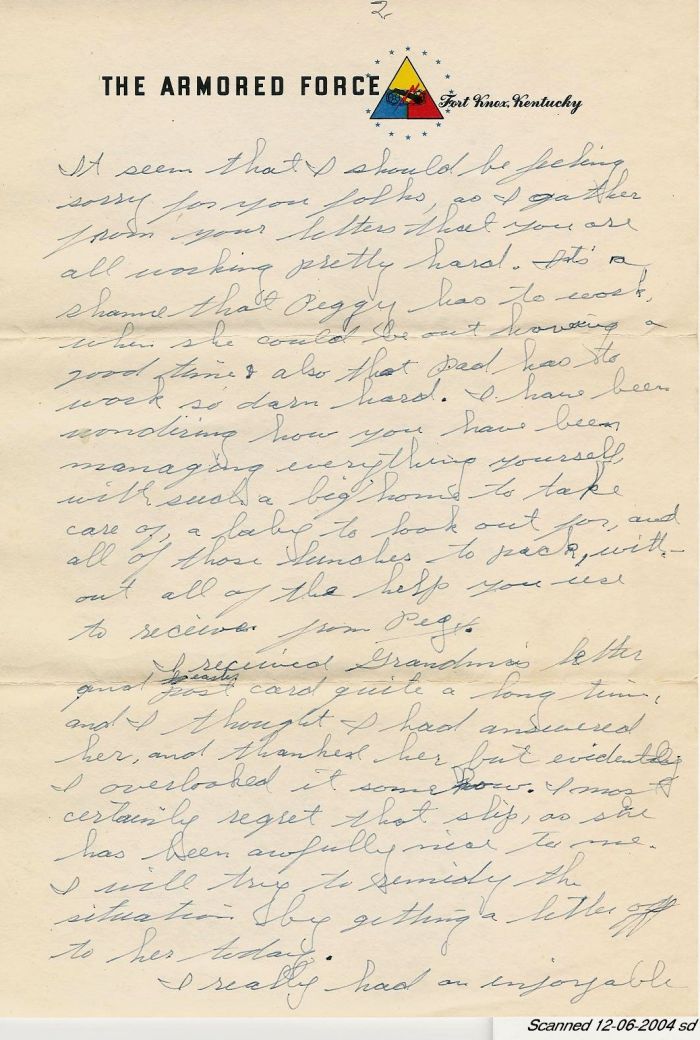 2
THE ARMORED FORCE
Fort Knox, Kentucky
It seem that I should be feeling
sorry for you folks, as I gather
from your letters that you are
all working pretty hard. It's a
shame that Peggy has to work,
when she could be out having a
good time & also that Dad has to
work so darn hard. I have been
wondiring how you have been
managing everything yourself,
with such a big home to take
care of, a baby to look out for, and
all of those lunches to pack, with-
out all of the help you use
to receive from Peg.
I received Grandma's letter
and Easter post card quite a long time,
and I thought I had answered
her, and thanked her but evidently
I overlooked it somehow. I most
certainly regret that slip, as she
has been awfully nice to me.
I will try to remidy the
situation by getting a letter off
to her today.
I really had an enjoyable
Scanned 12-06-2004 sd